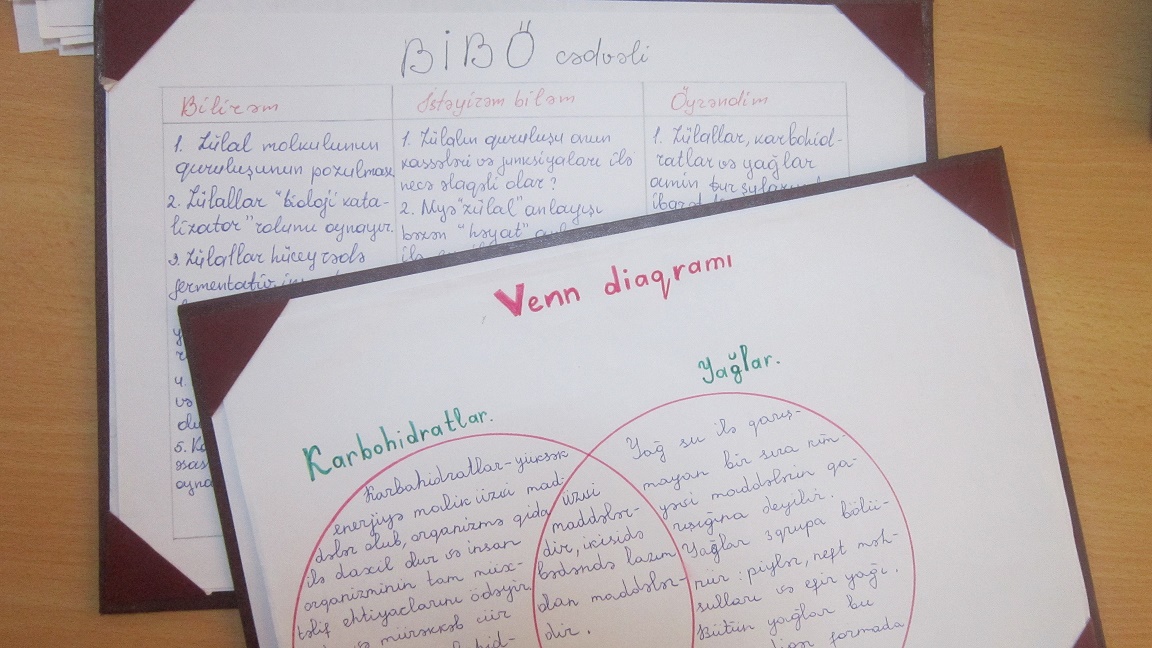 BİBÖ cədvəli
Bilirəm
1. Zülal molkulunun
quruluşunun pozulması
2. Zülallar "bioloji kata-
lizator" rolunu oynayır.
3. Zülallar hüceyrədə
fermentativ
4.
və
5.
əsas
İstəyirəm biləm
1. Zülalın quruluşu onun
xassələri və funksiyaları ilə
necə əlaqəli olar?
2. Niyə "zülal" anlayışı
bəzən "həyat"
ilə
Öyrəndim
1. Zülallar, karbohid-
ratlar və yağlar
amin turşularından
ibarət
Venn diaqramı
Karbohidratlar.
Karbahidratlar-yüksək
enerjiyə malik üzvi mad-
dələr olub, organizmə qida
ilə daxil olur və insan
organizminin tam müx-
təlif ehtiyaclarını ödəyir.
və mürəkkəb cür
üzvi
maddələr-
dir, ikisidə
bədəndə lazım
olan maddələr-
dir.
Yağlar.
Yağ su ilə qarış-
mayan bir sıra kim-
yəvi maddələrin qa-
rışığına deyilir.
Yağlar 3 qrupa bölü-
nür: piylər, neft məh-
sulları və efir yağı.
Bütün yağlar bu
formada